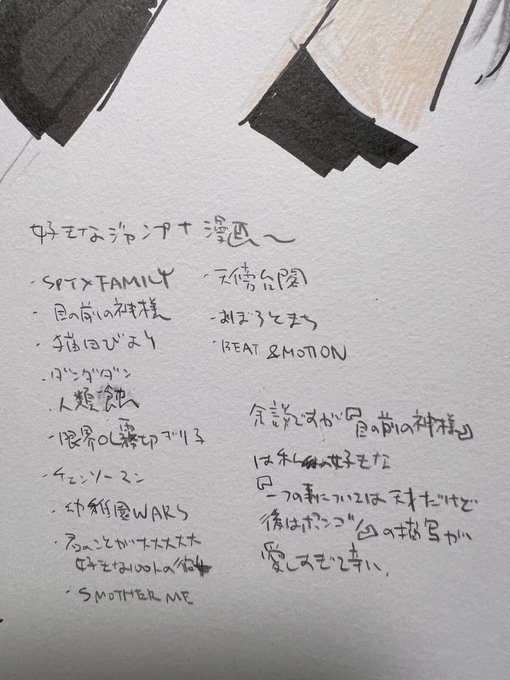 好きなジャンプ+漫画〜
・SPY×FAMILY
・目の前の神様
・猫田びより
・ダンダダン
・人類蝕
・限界OL霧切ギリ子
・チェンソーマン
・幼稚園WARS
・君のことが大大大大大
好きな100人の彼
・SMOTHER ME
・天傍台閣
・おぼろとまち
・BEAT&MOTION
余談ですが『目の前の神様』
は私好きな
『一つの事については天才だけど
後はポンコツ』の描写が
愛しすぎて辛い、